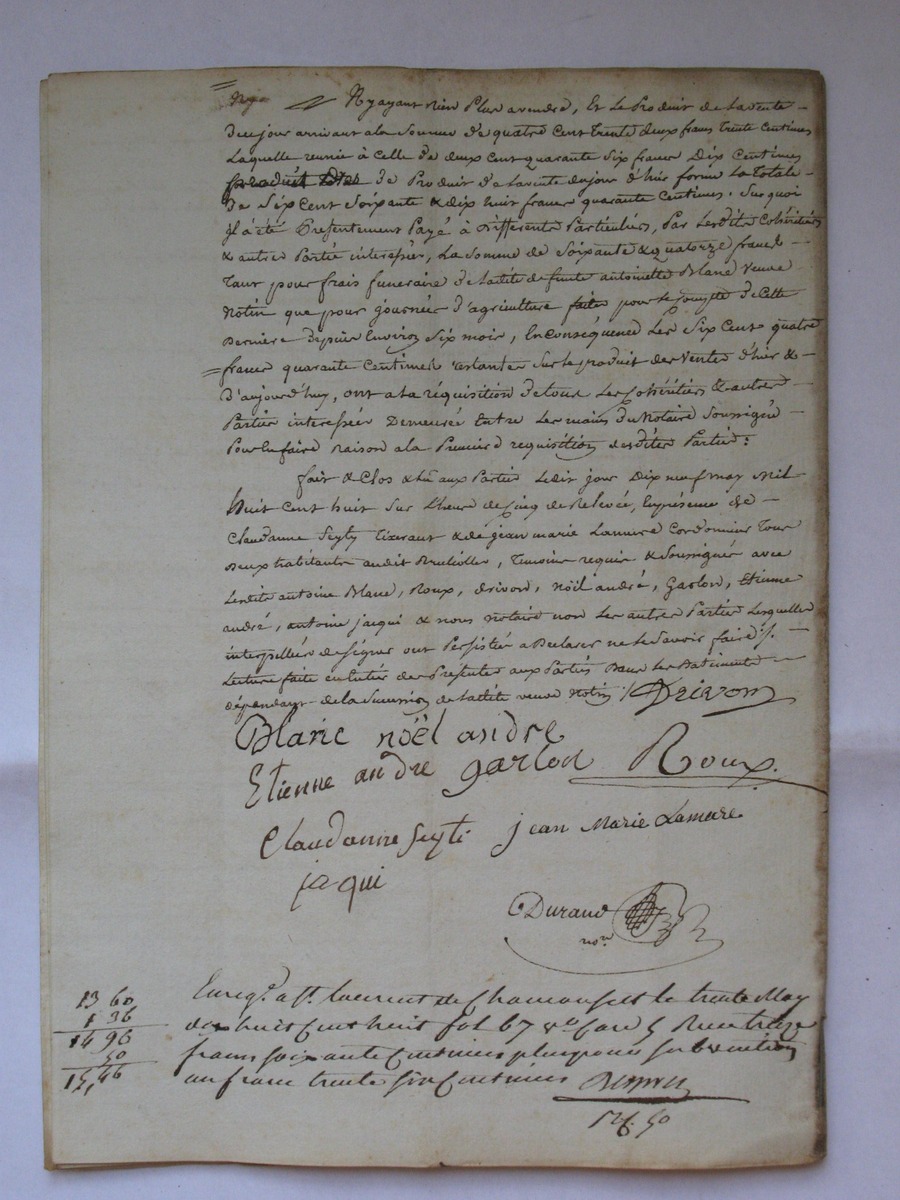 N'y ayant Rien Plus a vendre, Et Le Produit de La vente
De ce jour arrivant a la Somme de quatre Cent trente deux francs trente Centimes
Laquelle reunie à celle de deux cent quarante Six francs Dix Centimes
de Produit de La vente du jour d'hier forme La Totale
De Six Cent Soixante & dix huit francs quarante Centimes. Sur quoi
il a été Presentement Payé à differents Particuliers, Par Lesdits Cohéritiers
& autres Partie interessées, La Somme de Soixante & Quatorze francs
Tant pour frais funeraire de Ladite defunte antoinette Blanc Veuve
Notin que pour journées d'agriculture faites pour le compte de Cette
Derniere depuis Environ Six mois, En Consequence Les Six Cent quatre
francs quarante Centimes restantes Sur le produit des Ventes d'hier &
D'aujourd'huy, ont a La réquisition de tous Les Cohéritiers & autres
Partie interessées Demeurés Entre Les mains du Notaire Soussigné
Pour En faire Raison a La Premiere requisition desdites Parties :
fait & Clos & Lu aux Partie Ledit jour Dix neuf may Mil
Huit Cent huit Sur L'heure de Cinq de Relevée, En présence de
Claudanne Seyty tixerant & de jean marie Lamure Cordonnier Tous
Deux habitants audit, Temoins requis & Soussignés avec
Lesdits antoine Blanc, Roux, drivon, Noël andré, Garlon, Etienne
andré, antoine jaqui & nous Notaire non Les autres Partie Lesquelles
interpellées de Signer ont Persistées a Declarer ne le Savoir faire ./.
Lecture faite aux Parties Dans Les Batiments
dépendants de La Succession de Ladite veuve Notin ./. Drivon
Blanc noël andre
Etienne andre garlon Roux
Claudanne Seyti jean Marie Lamure
jaqui
Durand
nore
13 60
1 36
14 96
50
15,46
Enregé a St. Laurent de Chamousset le trente May
dix huit Cent huit fol 67 vo Case 5 Reçu treize
francs soixante Centimes plus pour subvention
un franc trente six Centimes
15f. 50